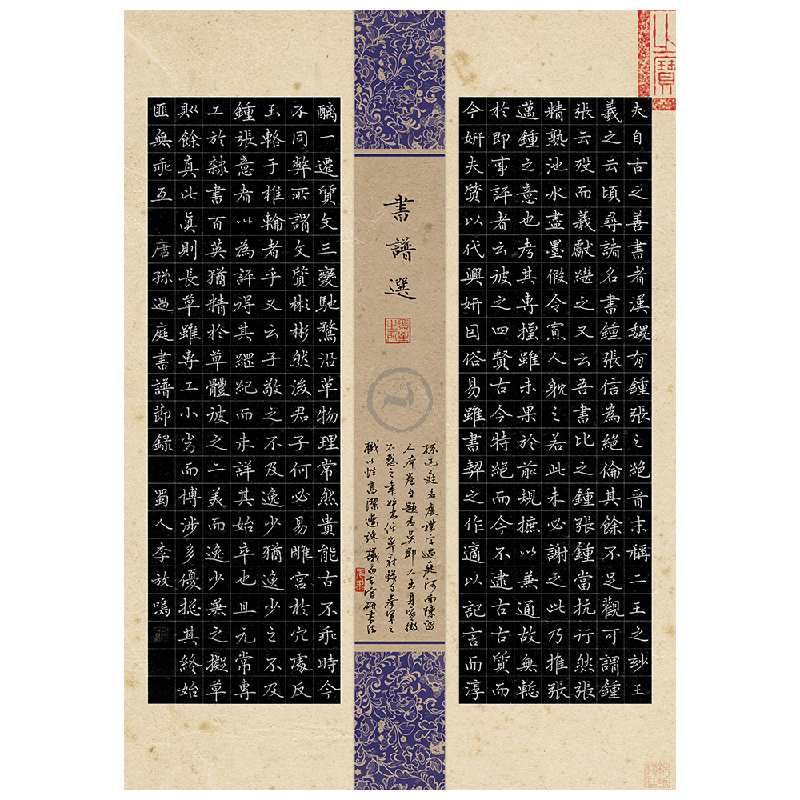 夫自古之善書者漢魏有鍾張之絕晉末稱二王之妙王
羲之云頃尋諸名書鍾張信為絕倫其餘不足觀可謂鍾
張云歿而羲獻繼之又云吾書比之鍾張鍾當抗行然張
精熟池水盡墨假令寡人耽之若此未必謝之此乃推張
邁鍾之意也考其專擅雖未果於前規摭以兼通故無慙
於即事評者云彼之四賢古今特絕而今不逮古古質而
今妍夫質以代興妍因俗易雖書契之作適以記言而淳
書譜選
醨一遷質文三變馳騖沿革物理常然貴能古不乖時今
不同弊所謂文質彬彬然後君子何必易雕宮於穴處反
玉輅于椎輪者乎又云子敬之不及逸少猶逸少之不及
鍾張意者以為評得其綱紀而未詳其始卒也且元常專
工於隸書百英猶精於草體彼之二美而逸少兼之擬草
則餘真比真則長草雖專工小劣而博涉多優揔其終始
匪無乖互 唐孫過庭書譜節錄 蜀人李放鳴